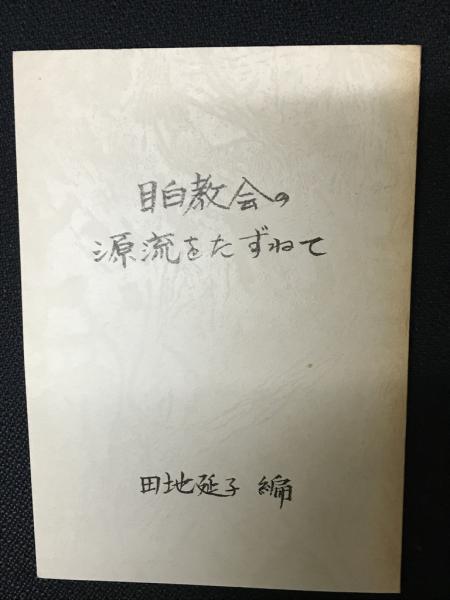 目白教会の
源流をたずねて
田地延子 編